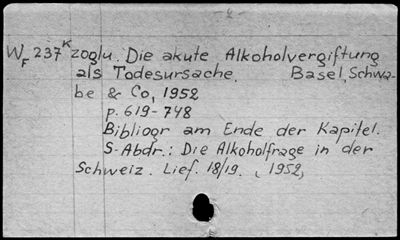 W_F 237^K zoglu. Die akute Alkoholvergiftung
als Todesursache. Basel, Schwa-
be & Co, 1952
p. 619-748
Bibliogr am Ende der Kapitel.
S-Abdr.: Die Alkoholfrage in der
Schweiz. Lief. 18/19. , 1952,